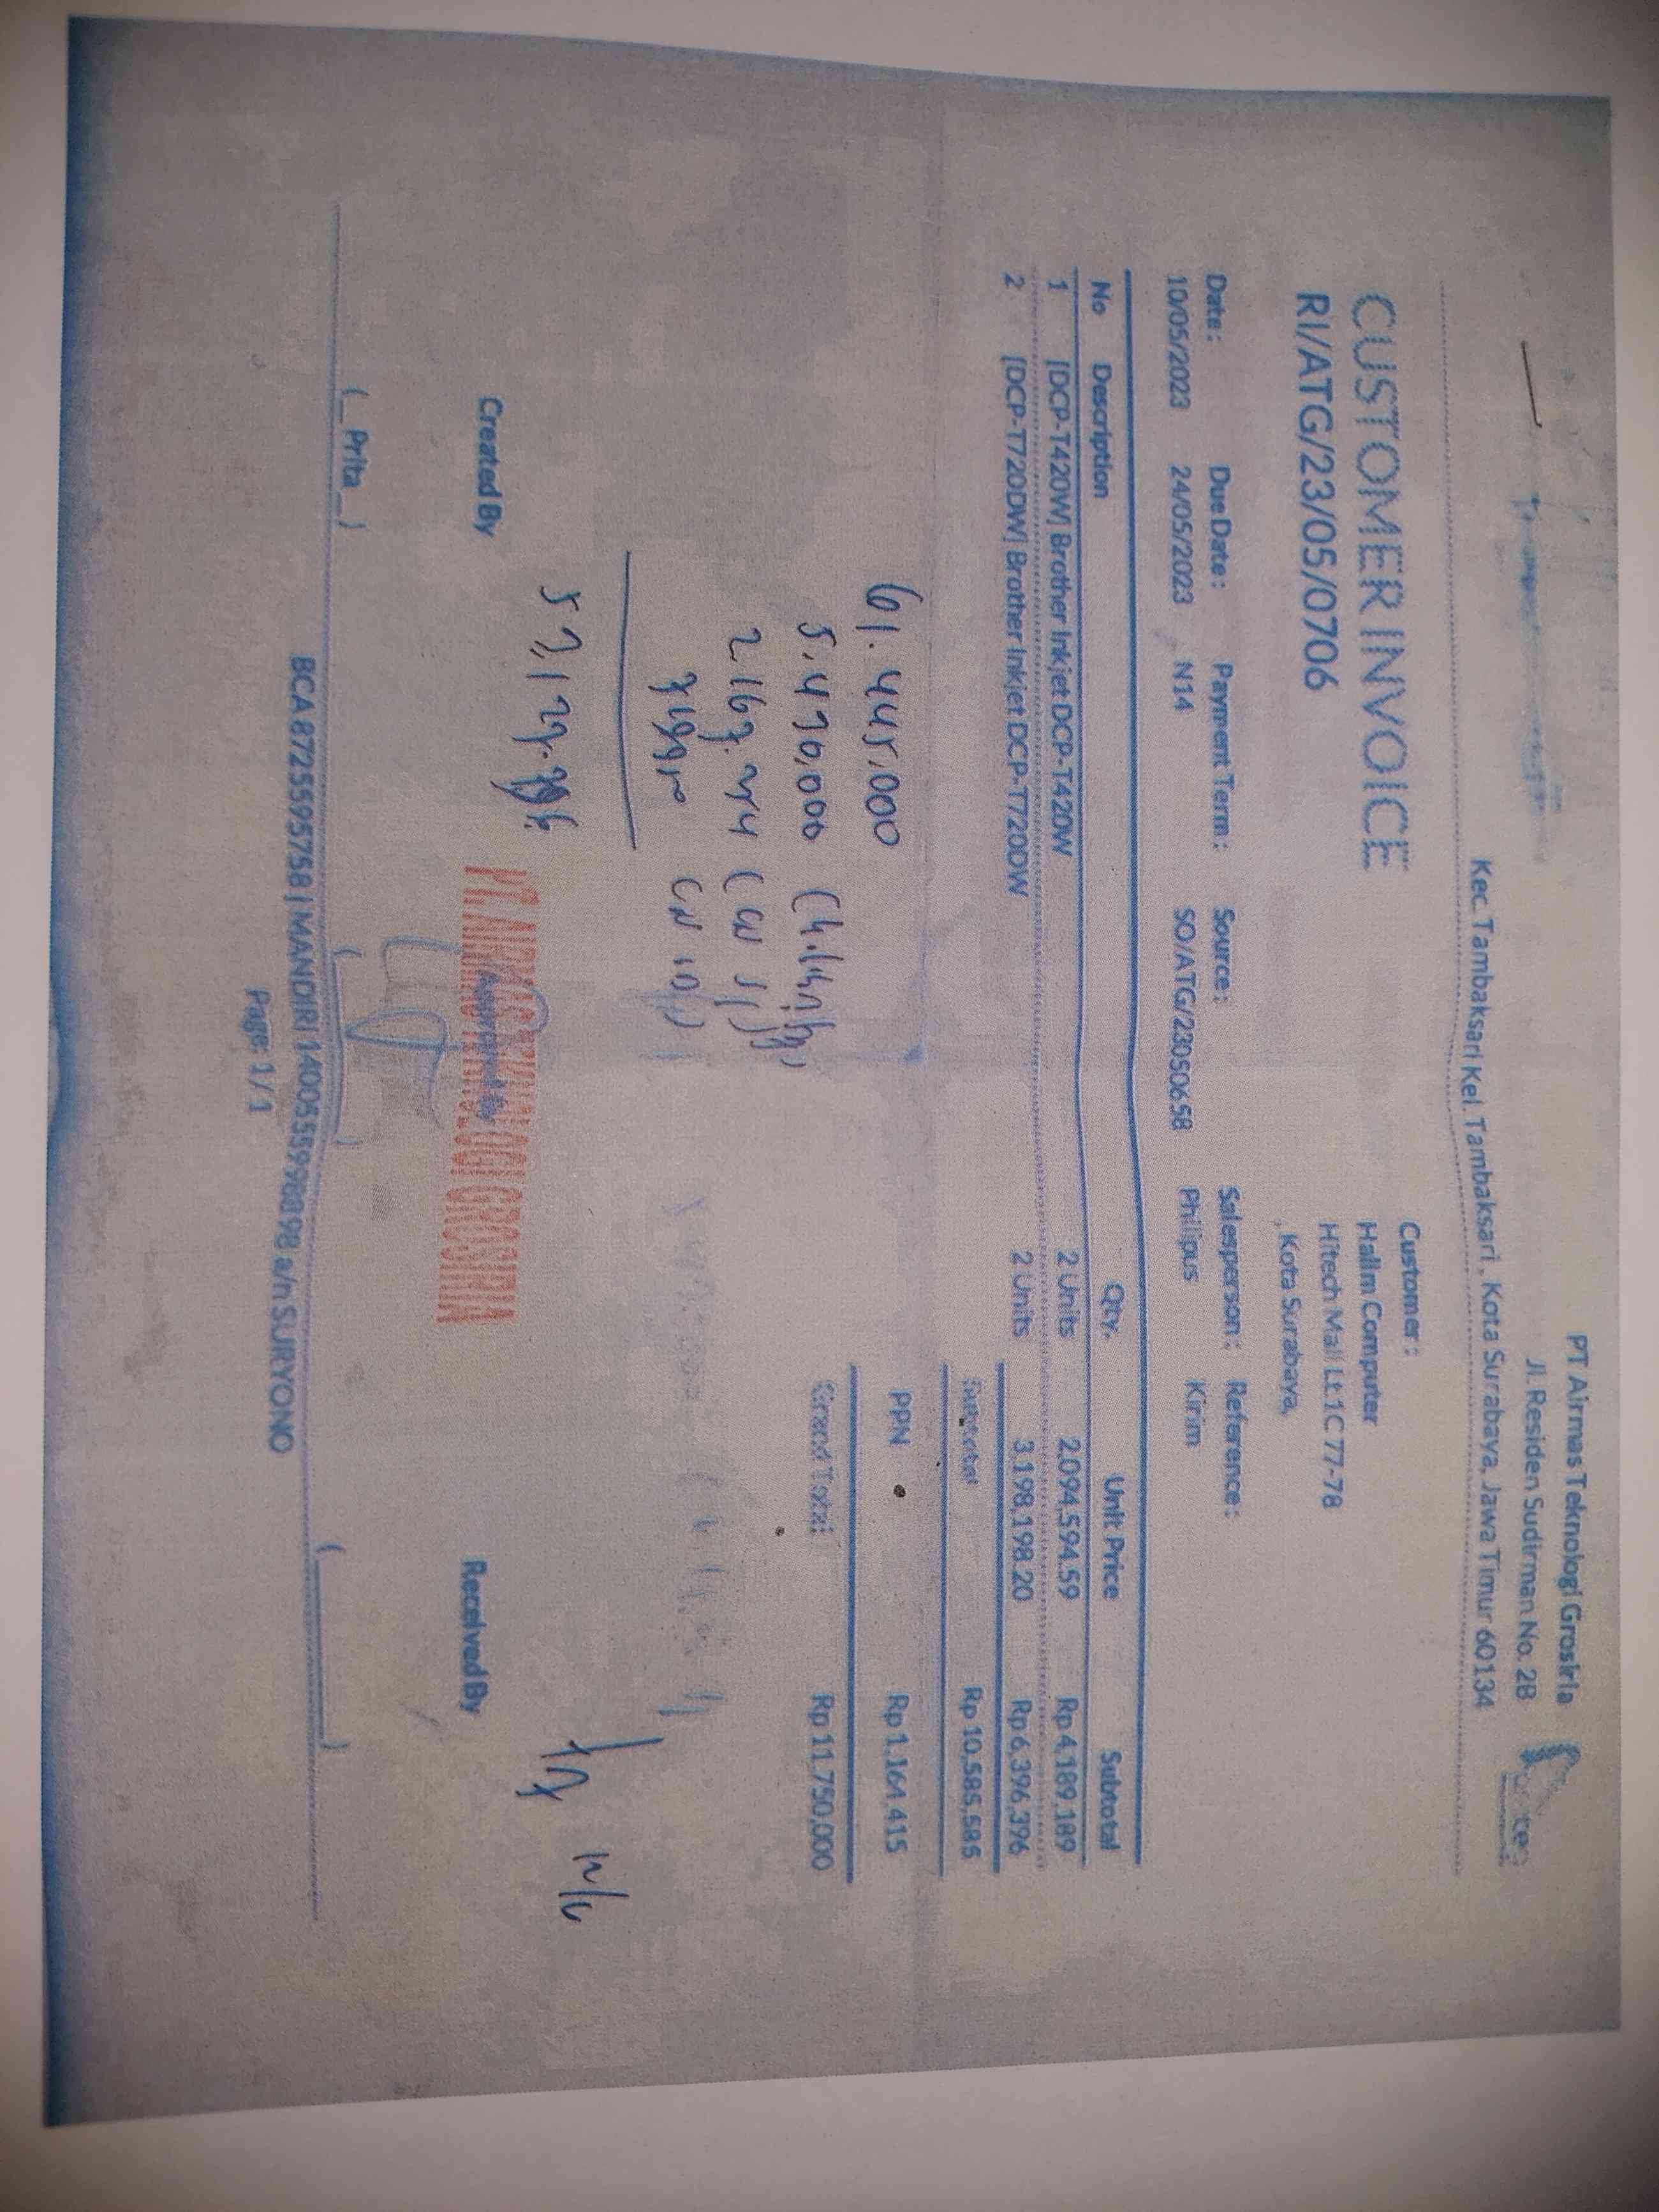 PT Airmas Teknologi Grosiria
Jl. Residen Sudirman No. 2B
Kec. Tambaksari Kel. Tambaksari , Kota Surabaya, Jawa Timur 60134
CUSTOMER INVOICE
RI/ATG/23/05/0706
Customer :
Halim Computer
Hitech Mall Lt 1 C 77-78
, Kota Surabaya,
Date : Due Date : Payment Term : Source : Salesperson : Reference :
10/05/2023 24/05/2023 N14 SO/ATG/23050658 Philipus Kirim
No Description Qty. Unit Price Subtotal
1 [DCP-T420W] Brother Inkjet DCP-T420W 2 Units 2.094.594.59 Rp 4.189.189
2 [DCP-T720DW] Brother Inkjet DCP-T720DW 2 Units 3.198.198.20 Rp 6.396.396
Subtotal Rp 10.585.585
PPN Rp 1.164.415
Grand Total Rp 11.750.000
61.445.000
5.470.000
Created By Received By
(_ Prita _) ( ) ( )
BCA 8725595758 | MANDIRI 1400555998898 a/n SURYONO
Page: 1 / 1